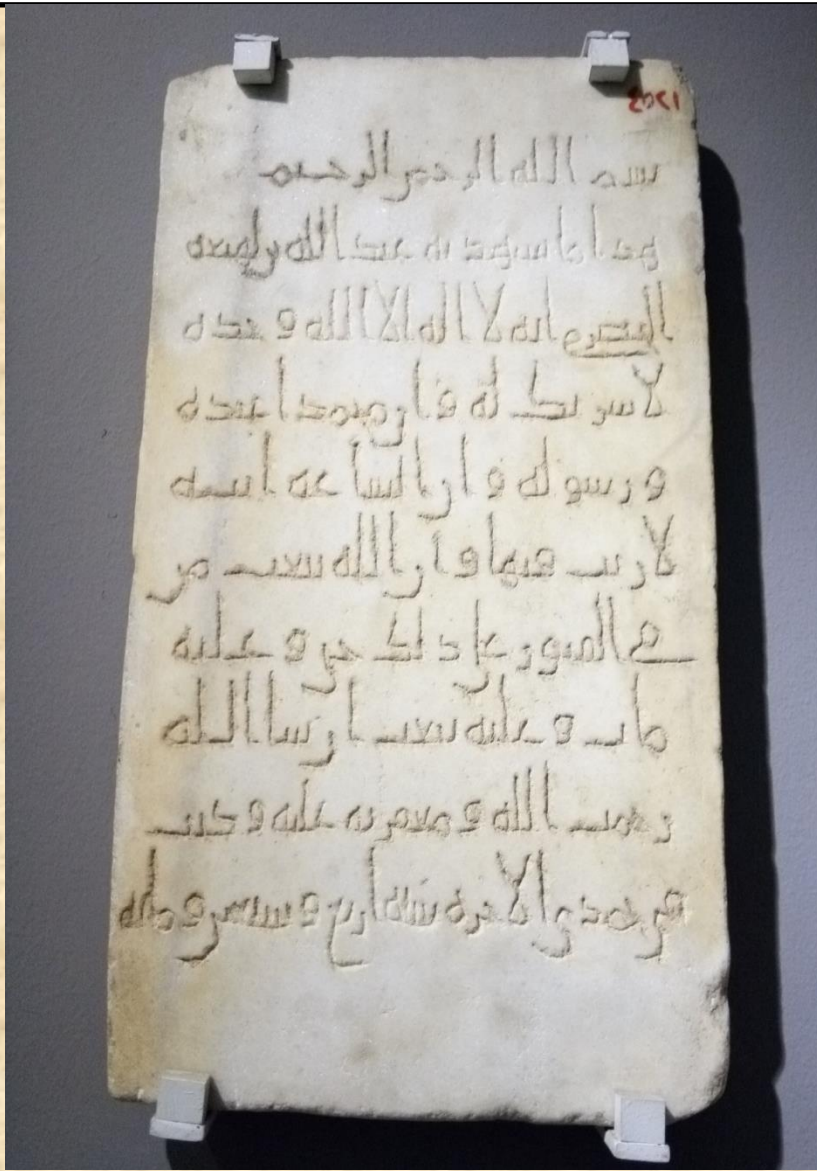 بسم الله الرحمن الرحيم
هذا ما شهد به عبد الله بن لهيعه
الحضرمي انه لا اله الا الله وحده
لا شريك له وان محمدا عبده
ورسوله وان الساعه اتيه
لا ريب فيها وان الله يبعث من
في القبور على ذلك حيي وعليه
مات وعليه يبعث ان شا الله
رحمت الله ومغفرته عليه وكتب
في جمدى الاخره سنه اربع وسبعين ومائه